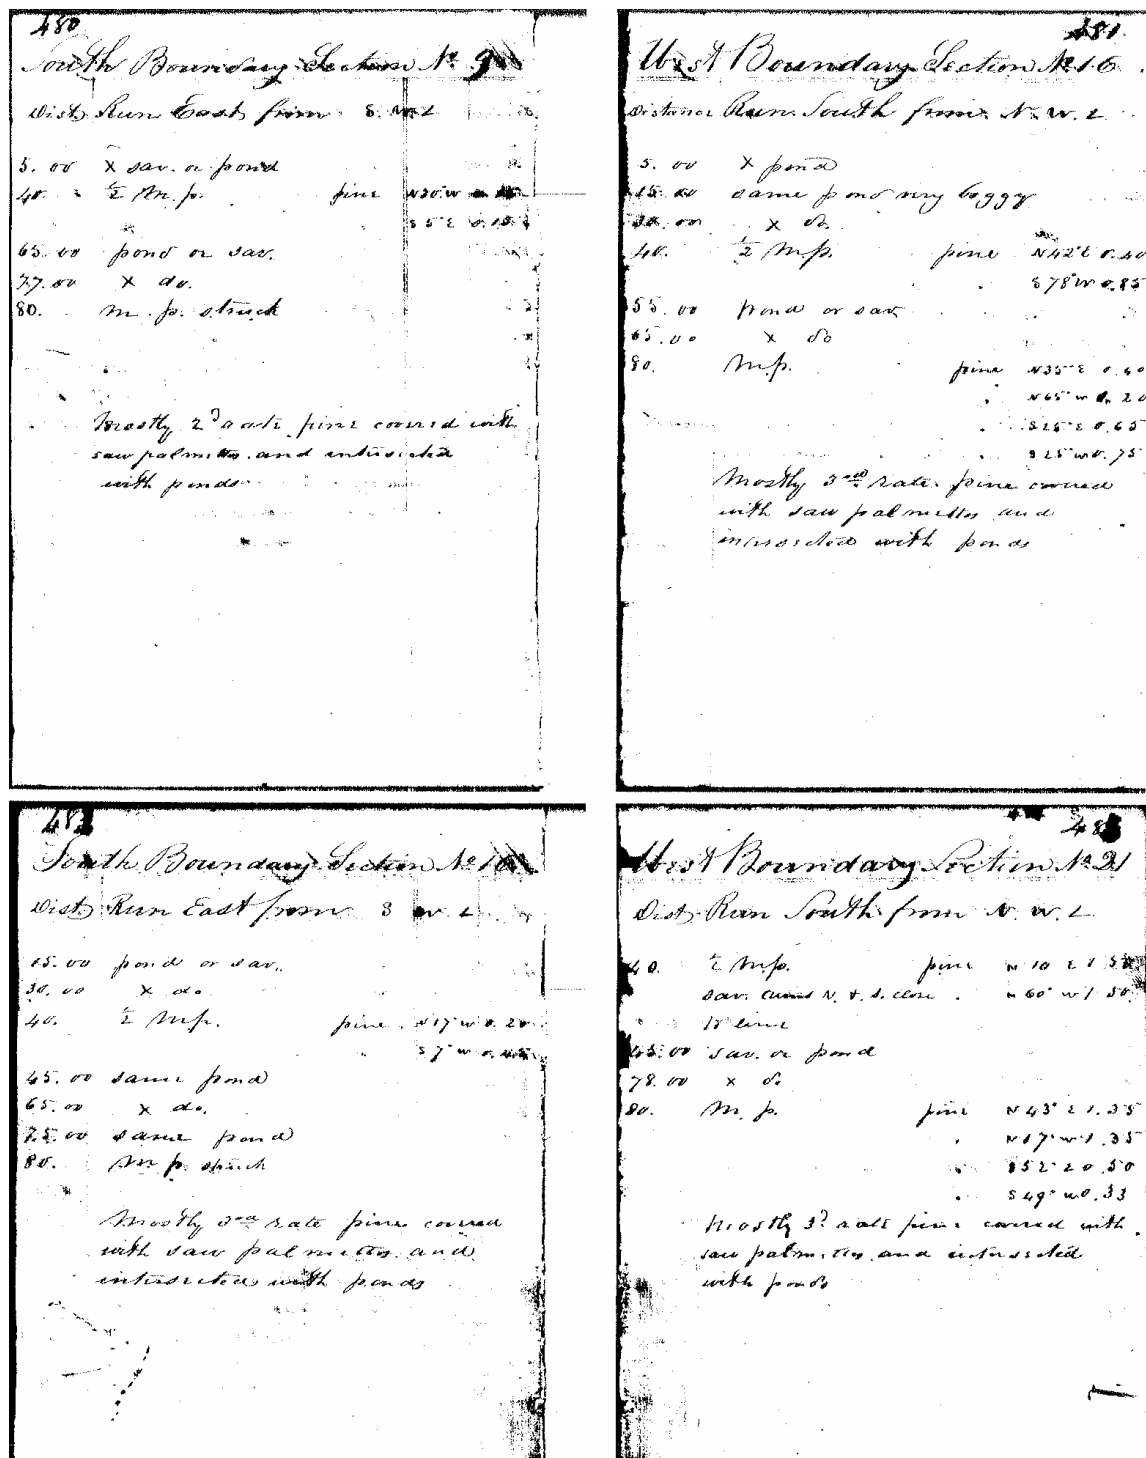 480
South Boundary Section No 9
Dist Run East from S. W. L
5.00 X sav. or pond
40. ½ M.p. pine N30°W
S5°E 0.15
65.00 pond or sav.
77.00 X do.
80. m. p. struck
Mostly 2d rate pine covered with
saw palmetto and intersected
with ponds
481
West Boundary Section No 16
Distance Run South from N. W. L
5.00 X pond
15.00 same pond very boggy
30.00 X do.
40. ½ M.p. pine N42°E 0.40
S78°W 0.85
55.00 pond or sav
65.00 X do
80. M.p. pine N35°E 0.40
N65°W 0.20
S25°E 0.65
S25°W 0.75
Mostly 3rd rate pine covered
with saw palmetto and
intersected with ponds
South Boundary Section No 16
Dist Run East from S W L
15.00 pond or sav.
30.00 X do
40. ½ M.p. pine N17°W 0.20
S7°W 0.45
45.00 same pond
65.00 X do.
75.00 same pond
80. M p. struck
Mostly 3rd rate pine covered
with saw palmetto and
intersected with ponds
West Boundary Section No 21
Dist Run South from N. W. L
40. ½ M.p. pine N10 E 1.50
sav. N. & S. close N60°W 1.50
line
45.00 sav. or pond
78.00 X do
80. M. p. pine N43°E 1.35
N17°W 1.35
S52°E 0.50
S49°W 0.33
Mostly 3d rate pine covered with
saw palmetto and intersected
with ponds